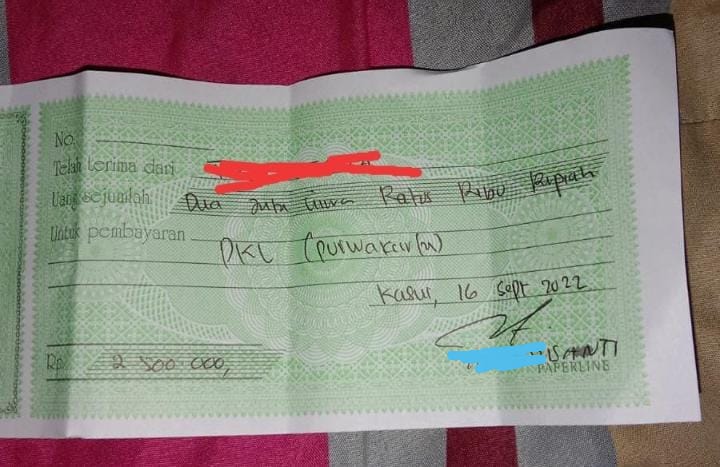 No.
Telah terima dari
Uang sejumlah Dua Juta Lima Ratus Ribu Rupiah
Untuk pembayaran
PKL (purwakarta)
16 Sept 2022
SANTI
Rp. 2 500 000,
PAPERLINE